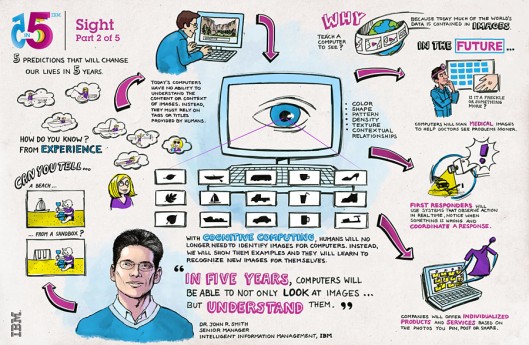 5 IN 5 IBM
Sight
Part 2 of 5
5 PREDICTIONS THAT WILL CHANGE
OUR LIVES IN 5 YEARS.
HOW DO YOU KNOW?
FROM EXPERIENCE
CAN YOU TELL...
A BEACH...
... FROM A SANDBOX?
TODAY'S COMPUTERS
HAVE NO ABILITY TO
UNDERSTAND THE
CONTENT OR CONTEXT
OF IMAGES. INSTEAD,
THEY MUST RELY ON
TAGS OR TITLES
PROVIDED BY HUMANS.
WHY
TEACH A
COMPUTER
TO SEE?
BECAUSE TODAY MUCH OF THE WORLD'S
DATA IS CONTAINED IN IMAGES.
IN THE FUTURE...
• COLOR
• SHAPE
• PATTERN
• DENSITY
• TEXTURE
• CONTEXTUAL
RELATIONSHIPS
IS IT A FRECKLE OR
SOMETHING MORE?
COMPUTERS WILL SCAN MEDICAL IMAGES
TO HELP DOCTORS SEE PROBLEMS SOONER.
!
FIRST RESPONDERS WILL
USE SYSTEMS THAT OBSERVE ACTION
IN REAL TIME, NOTICE WHEN
SOMETHING IS WRONG AND
COORDINATE A RESPONSE.
WITH COGNITIVE COMPUTING, HUMANS WILL NO
LONGER NEED TO IDENTIFY IMAGES FOR COMPUTERS. INSTEAD,
WE WILL SHOW THEM EXAMPLES AND THEY WILL LEARN TO
RECOGNIZE NEW IMAGES FOR THEMSELVES.
“IN FIVE YEARS, COMPUTERS WILL
BE ABLE TO NOT ONLY LOOK AT IMAGES ...
BUT UNDERSTAND THEM.”
DR. JOHN R. SMITH
SENIOR MANAGER
INTELLIGENT INFORMATION MANAGEMENT, IBM
COMPANIES WILL OFFER INDIVIDUALIZED
PRODUCTS AND SERVICES BASED ON
THE PHOTOS YOU PIN, POST OR SHARE.
IBM